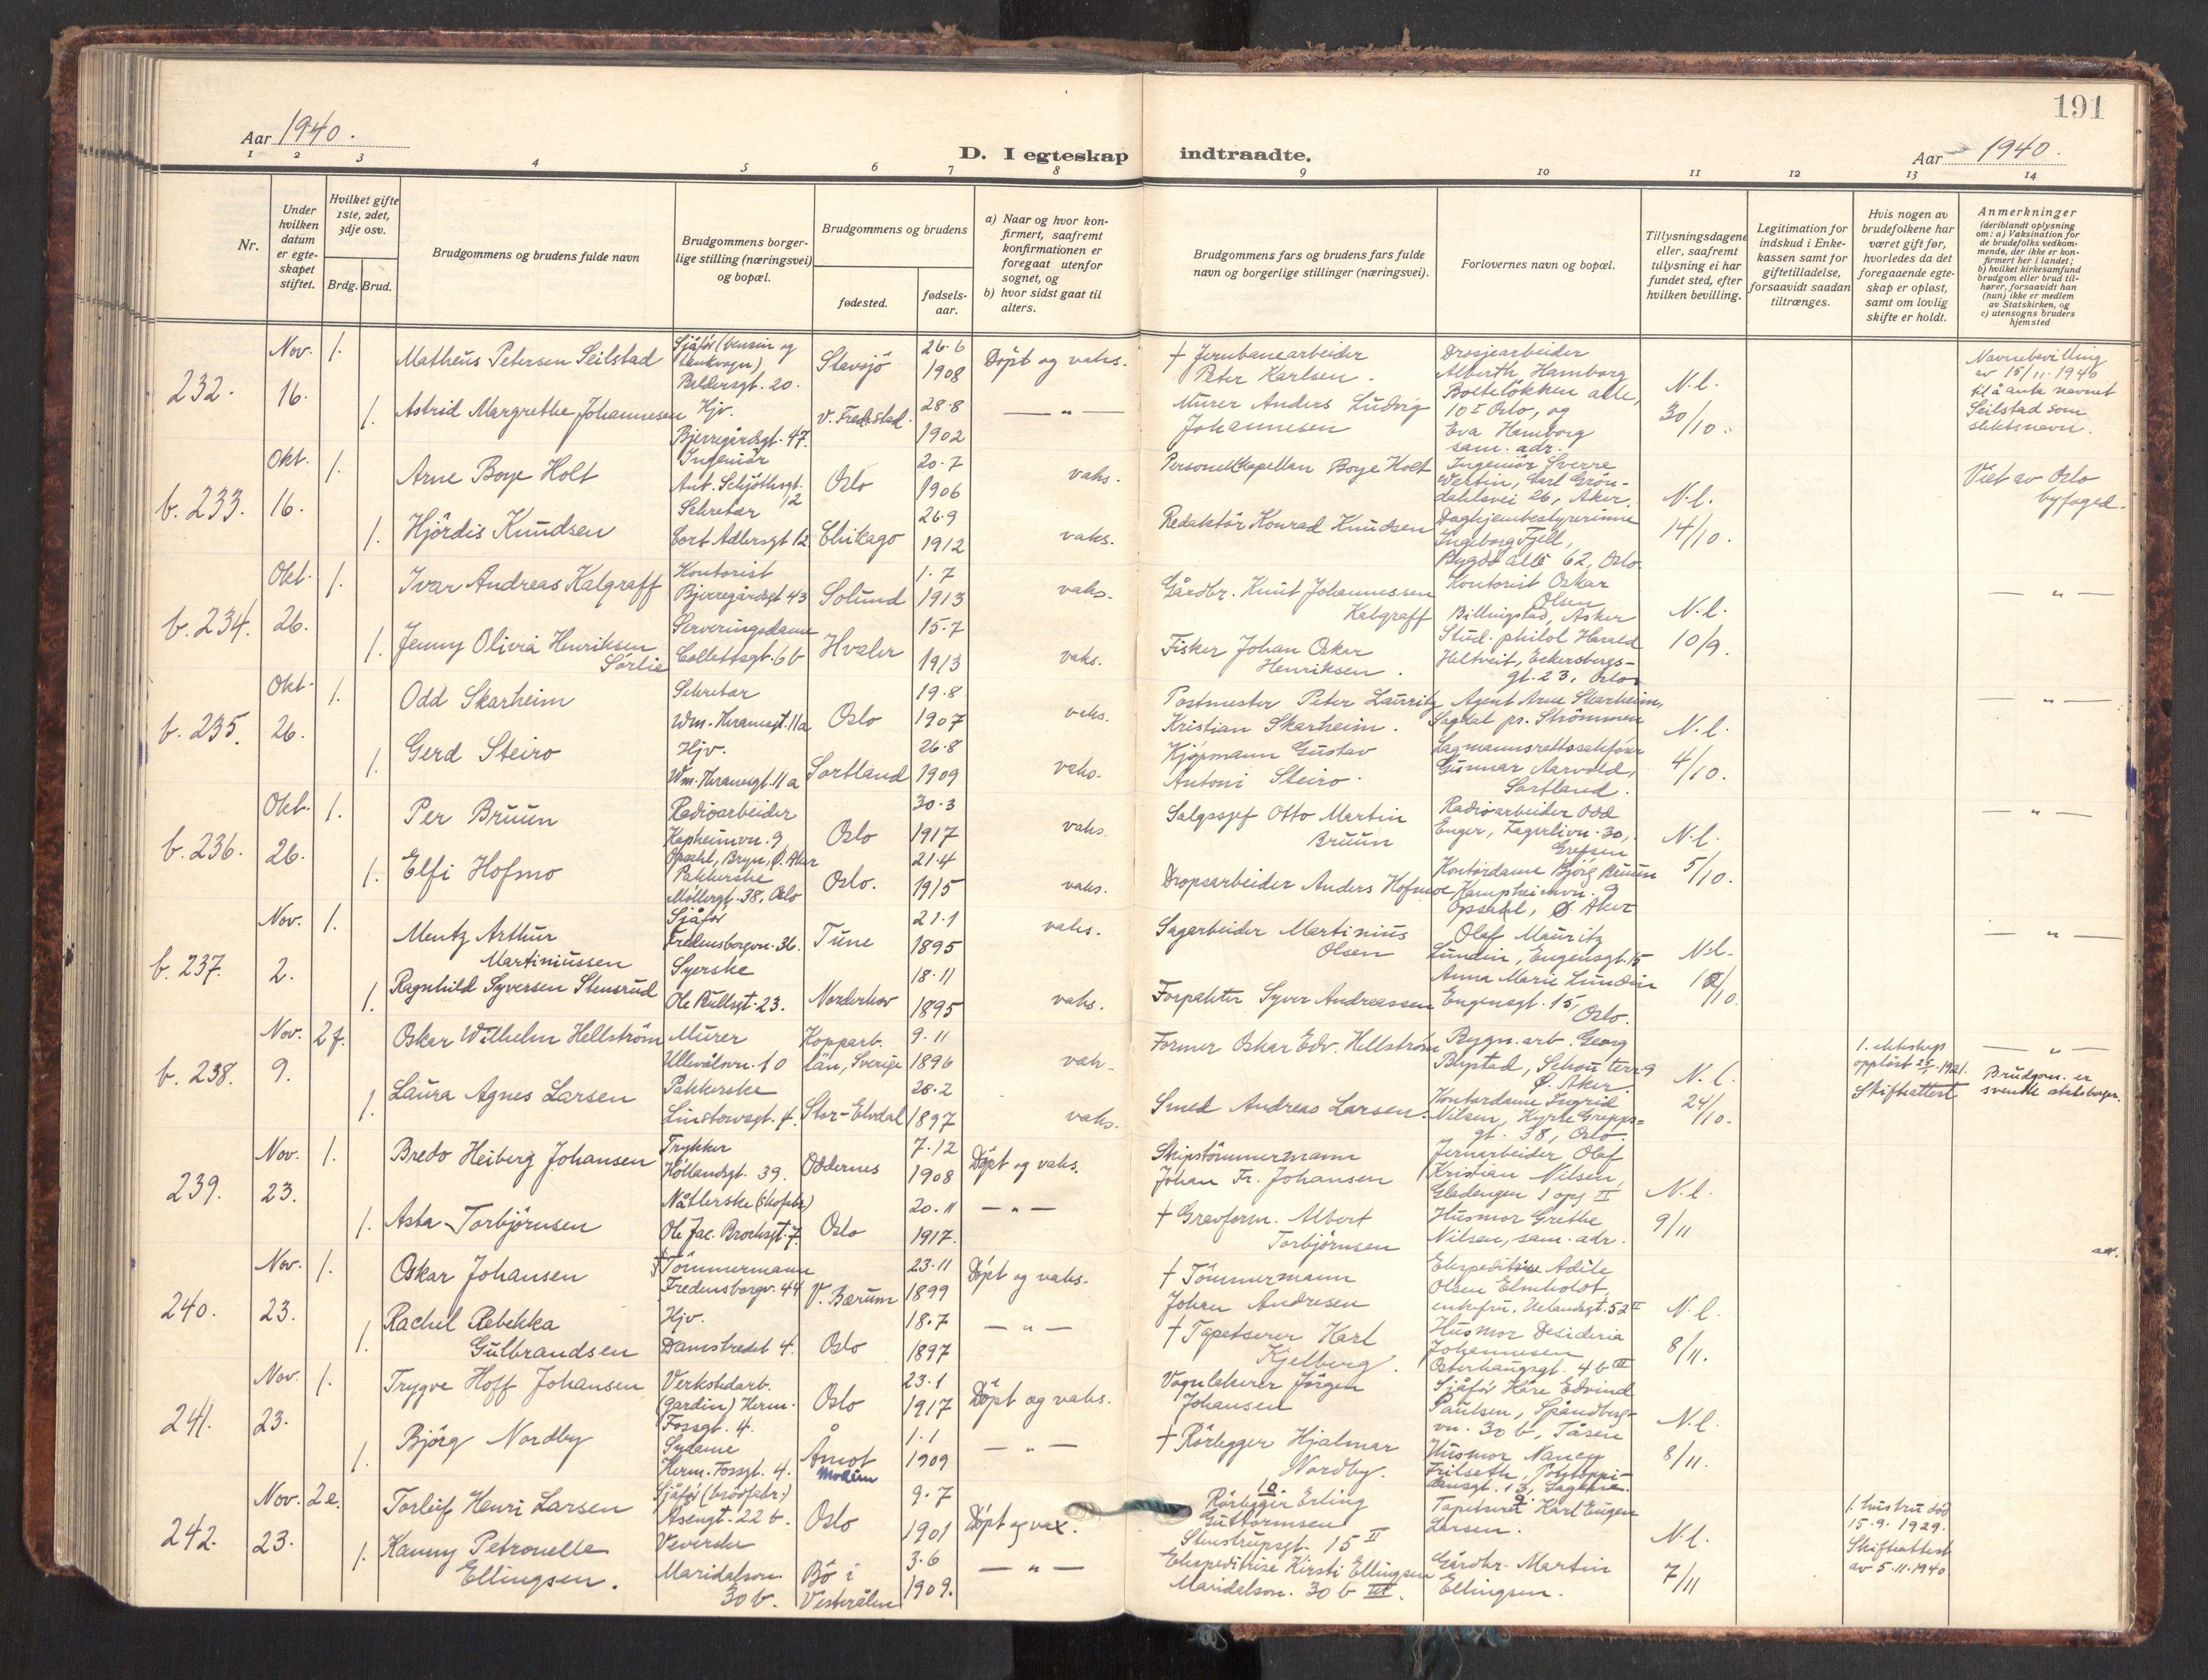 191
Aar 1940.
D. I egteskap indtraadte.
Aar 1940.
1 2 3 4 5 6 7 8 9 10 11 12 13 14
Nr.
Under hvilken datum er egteskapet stiftet.
Hvilket gifte 1ste, 2det, 3dje osv.
Brdg. Brud.
Brudgommens og brudens fulde navn
Brudgommens borgerlige stilling (næringsvei) og bopæl.
Brudgommens og brudens
fødested.
fødselsaar.
a) Naar og hvor konfirmert, saafremt konfirmationen er foregaat utenfor sognet, og
b) hvor sidst gaat til alters.
Brudgommens fars og brudens fars fulde navn og borgerlige stillinger (næringsvei).
Forlovernes navn og bopæl.
Tillysningsdagene eller, saafremt tillysning ei har fundet sted, efter hvilken bevilling.
Legitimation for indskud i Enkekassen samt for giftetilladelse, forsaavidt saadan tiltrænges.
Hvis nogen av brudefolkene har været gift før, hvorledes da det foregaaende egteskap er opløst, samt om lovlig skifte er holdt.
Anmerkninger
(deriblandt oplysning om: a) Vaksination for de brudefolks vedkommende, der ikke er konfirmert her i landet;
b) hvilket kirkesamfund brudgom eller brud tilhører, forsaavidt han (hun) ikke er medlem av Statskirken, og
c) utensogns bruders hjemsted
232. Nov. 16. 1.
Matheus Petersen Seilstad
Baldersgt. 20.
Stavsjö
26.6 1908
Döpt og vaks.
+ Jernbanearbeider Peter Karlsen.
Drosjearbeider Alberth Hamborg
Bolteløkken alle, 10 I Oslo, og
Eva Hamborg sam. adr.
N.l. 30/10.
Navnebevilling av 15/11.1940 til å anta navnet Seilstad som slektsnavn.
1. Astrid Margrethe Johannesen
Hjv.
Bjerregårdsgt. 47.
v. Fredrikstad.
28.8 1902
— " —
Murer Anders Ludvig Johannesen
b. 233. Okt. 16. 1.
Arne Boye Holt
Ingeniör
Ant. Schjöthsgt. 12
Oslo
20.7 1906
vaks.
Personellkapellan Boye Holt
Ingeniör Sverre Wettin, Carl Gröndahlsvei 26, Aker.
N.l. 14/10.
Viet av Oslo byfoged.
1. Hjördis Knudsen
Sekretær
Cort Adlersgt 12
Chikago
26.9 1912
vaks.
Redaktör Konrad Knudsen
Daghjembestyrerinne Ingeborg Fjell,
Bygdö allé 62, Oslo.
b. 234. Okt. 26. 1.
Ivar Andreas Kalgraff
Kontorist
Bjerregårdsgt 43
Solund
1.7 1913
vaks.
Gårdbr. Knut Johannessen Kalgraff
Kontorist Oskar Olsen
Billingstad, Asker
N.l. 10/9.
— " —
1. Jenny Olivia Henriksen Sörlie
Serveringsdame
Collettsgt. 6b
Hvaler
15.7 1913
vaks.
Fisker Johan Oskar Henriksen.
Stud. philol Harald Heltveit, Eckersbergsgt. 23, Oslo
b. 235. Okt. 26. 1.
Odd Skarheim
Sekretær
Wm. Thranesgt. 11a
Oslo
19.8 1907
vaks.
Postmester Peter Lauritz Kristian Skarheim.
Agent Arne Skarheim,
Sagdal pr. Strömmen
N.l. 4/10.
— " —
1. Gerd Steiro
Hjv.
Wm. Thranesgt. 11a
Sortland
26.8 1909
vaks.
Kjöpmann Gustav Antoni Steiro.
Lagmannsrettssakförer Gunnar Aarvold, Sortland.
b. 236. Okt. 26. 1.
Per Bruun
Radioarbeider
Opsahl, Bryn, Ø. Aker
Oslo
30.3 1917
vaks.
Salgssjef Otto Martin Bruun
Radioarbeider Odd Enger, Fagerlivn. 30, Grefsen
N.l. 5/10.
— " —
1. Elfi Hofmo
Pakkerske
Möllergt. 38, Oslo
Oslo.
21.4 1915
vaks.
Dropsarbeider Anders Hofmoe
Kontordame Björg Bruun
Opsahl, Ø Aker
b. 237. Nov. 2. 1.
Mentz Arthur Martiniussen
Sjåför
Fredensborgvn. 36.
Tune
21.1 1895
vaks.
Sagarbeider Martinius Olsen
Olaf Mauritz Lundin, Eugensgt. 15
N.l.
— " —
1. Ragnhild Syversen Stensrud
Syerske
Ole Bullsgt. 23.
Norderhov
18.11 1895
vaks.
Forpakter Syver Andreassen
Anna Marie Lundin
Eugensgt. 15, Oslo.
b. 238. Nov. 9. 2 f.
Oskar Wilhelm Hellström
Murer
Ullevålsvn. 10
Kopparb. län, Sverige
9.11 1896
vak.
Former Oskar Edv. Hellström
Bygn. arb. Georg Bystad, Schouterr. 9 Ø. Aker.
N.l. 24/10.
1. ekteskap opplöst 1921.
Skifteattest
— " —
Brudgom. er svensk statsborger.
1. Laura Agnes Larsen
Pakkerske
Linstowsgt. 4.
Stor-Elvdal
28.2 1897
vaks.
Smed Andreas Larsen.
Kontordame Ingrid Nilsen, Kyrre Greppsgt. 38, Oslo.
239. Nov. 23. 1.
Bredo Heiberg Johansen
Trykker
Hollandsgt. 39.
Oddernes
7.12 1908
Döpt og vaks.
Skipstömmermann Johan Fr. Johansen
Jernarbeider Olaf Kristian Nilsen,
Gladengen 1 opg II
N.l. 9/11
1. Asta Torbjörnsen
Nåtlerske (skofabr.)
Ole Jac. Brochsgt. 7.
Oslo
20.11 1917.
— " —
+ Gravform. Albert Torbjörnsen
Husmor Grethe Nilsen, sam. adr.
240. Nov. 23. 1.
Oskar Johansen
Tömmermann
Fredensborgv. 44
V. Bærum
23.11 1899
Döpt og vaks.
+ Tömmermann Johan Andresen
Ekspeditrise Adile Olsen Elmholdt,
enkefru, Uelandsgt. 52 II
N.l. 8/11.
1. Rachel Rebekka Gulbrandsen
Hjv.
Damstredet 4.
Oslo
18.7 1897
— " —
+ Tapetserer Karl Kjelberg.
Husmor Desideria Johannesen
Osterhausgt. 4b III
241. Nov. 23. 1.
Trygve Hoff Johansen
Verkstedarb. (gardin) Herm. Fossgt. 4.
Oslo
23.1 1917
Döpt og vaks.
Vognlakerer Jörgen Johansen
Sjåför Kåre Edvind Paulsen, Spångbergvn. 30 b, Tåsen
N.l. 8/11.
1. Björg Nordby
Sydame
Herm. Fossgt. 4.
Åmot Modum
1.1 1909
— " —
+ Rörlegger Hjalmar Nordby.
Husmor Nancy Frilseth, Pontoppidansgt. 13, Sagene.
242. Nov. 23. 2 e.
Torleif Henri Larsen
Sjåför (brödfabr.)
Åsengt. 22 b.
Oslo
9.7 1901
Döpt og vax.
10
Rörlegger Erling Guttormsen
Stenstrupsgt. 15 II
9
Tapetserer Karl Eugen Larsen.
N.l. 7/11
1. hustru död 15.9.1929.
Skifteattest av 5.11.1940
1. Kanny Petronelle Ellingsen.
Veverske
Maridalsvn. 30 b.
Bö i Vesterålen
3.6 1909.
— " —
Ekspeditrise Kirsti Ellingsen
Maridalsvn. 30 b III.
Gårdbr. Martin Ellingsen.